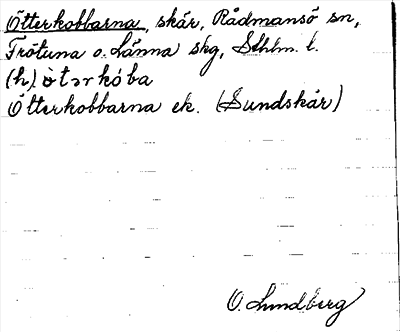 Ötterkobbarna, skär, Rådmansö sn,
Frötuna o. Länna skg, Sthlm. l.
(h) ö̀tərkóba
Ötterkobbarna ek. (Sundskär)
O. Lundberg